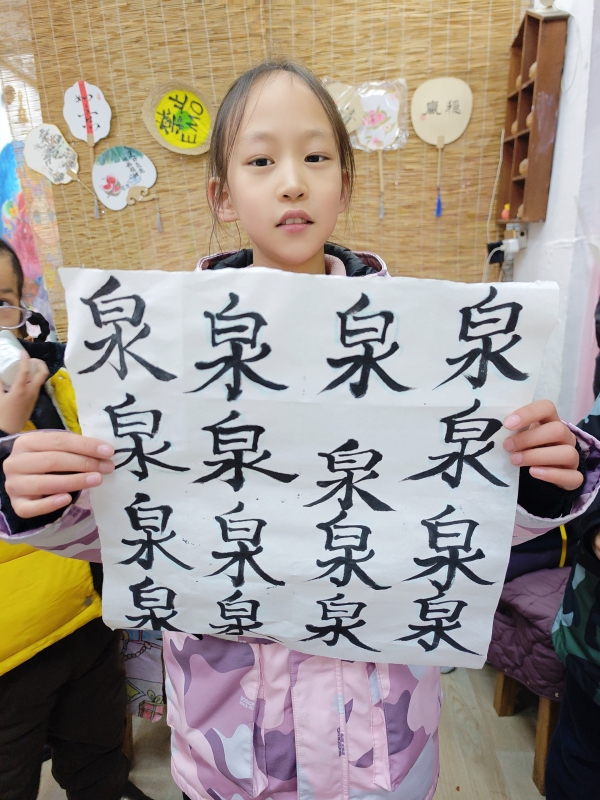 禁止
EMO
泉 泉 泉 泉
泉 泉 泉 泉
泉 泉 泉 泉
泉 泉 泉 泉